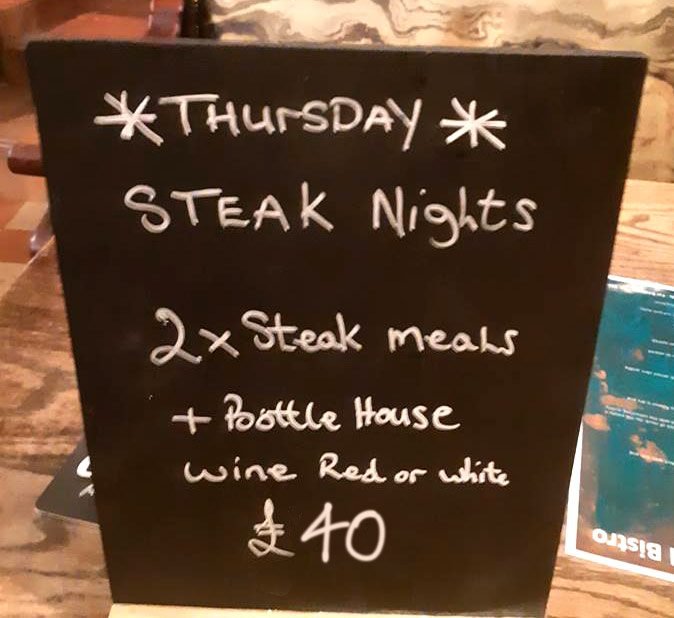 *THURSDAY*
STEAK Nights
2 x Steak meals
+ Boottle House
wine Red or white
£40
Bistro